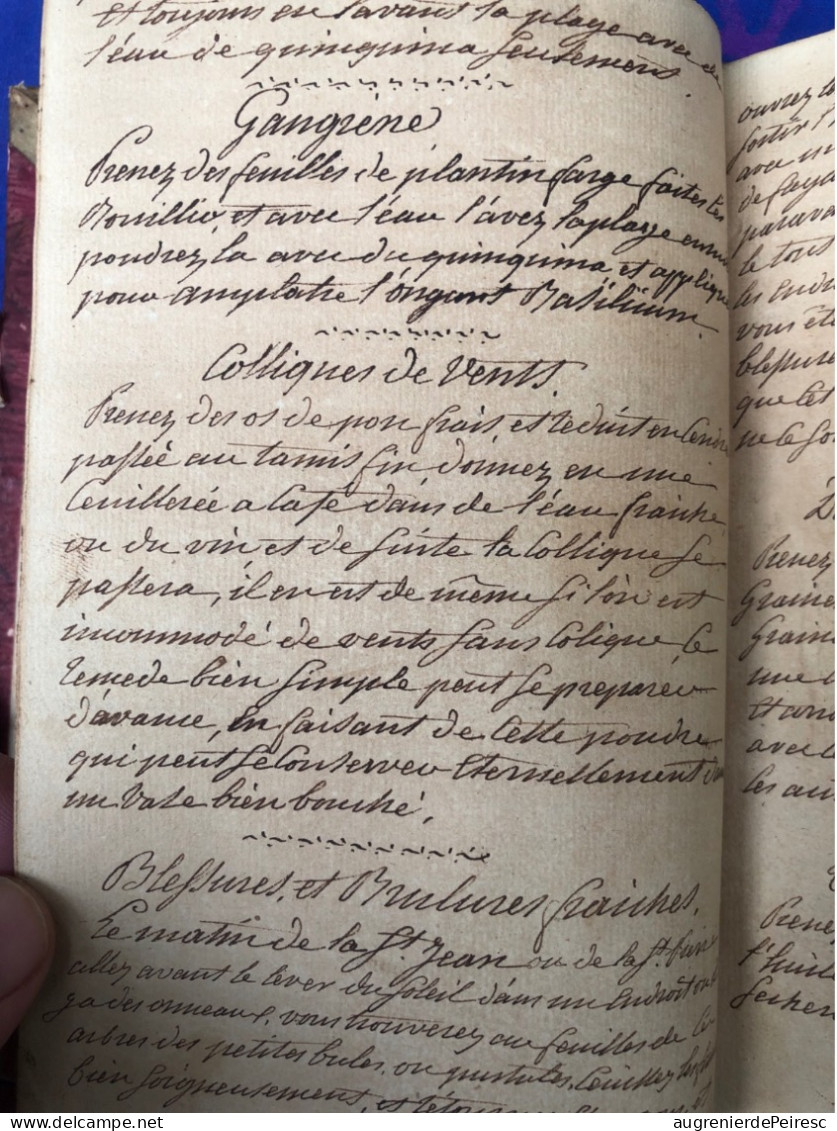 et toujours en lavant la plaÿe avec de
l'eau de quinquina seulement.
Gangrène
Prenez des feuilles de plantin large faites les
Bouillir, et avec l'eau l'avez la plaÿe ensuite
poudrez la avec du quinquina et applique
pour amplatre l'ongant Basilium.
Colliques de Vents.
Prenez des os de porc frais, et réduit en Cendre
passée au tamis fin donnez en une
Ceuillerée a Café dans de l'eau fraiche
ou du vin, et de suite la Collique se
passera, il en est de même si l'on est
incommodé de vents sans Colique Ce
remede bien simple peut se preparer
d'avance, en faisant de Cette poudre
qui peut se Conserver Eternellement dans
un Vase bien bouché.
Blessures, et Brulures fraiches.
Le matin de la St. Jean ou de la St.
allez avant le lever du Soleil dans un Endroit ou il
ÿ a des ormeaux, vous trouverez aux feuilles de Ces
arbres des petites bules, ou pustules, Ceuillez les
bien soigneusement, et
ouvrez le
sortir l'
avec un
de faya
parava
le tout
les endro
vous éte
blessure
que Cet
ne le so
Prenez
Graine
Graine
une
et
avec le
les au
Prenez
l'huil
secher
Delcampe.net
augrenierdePeiresc